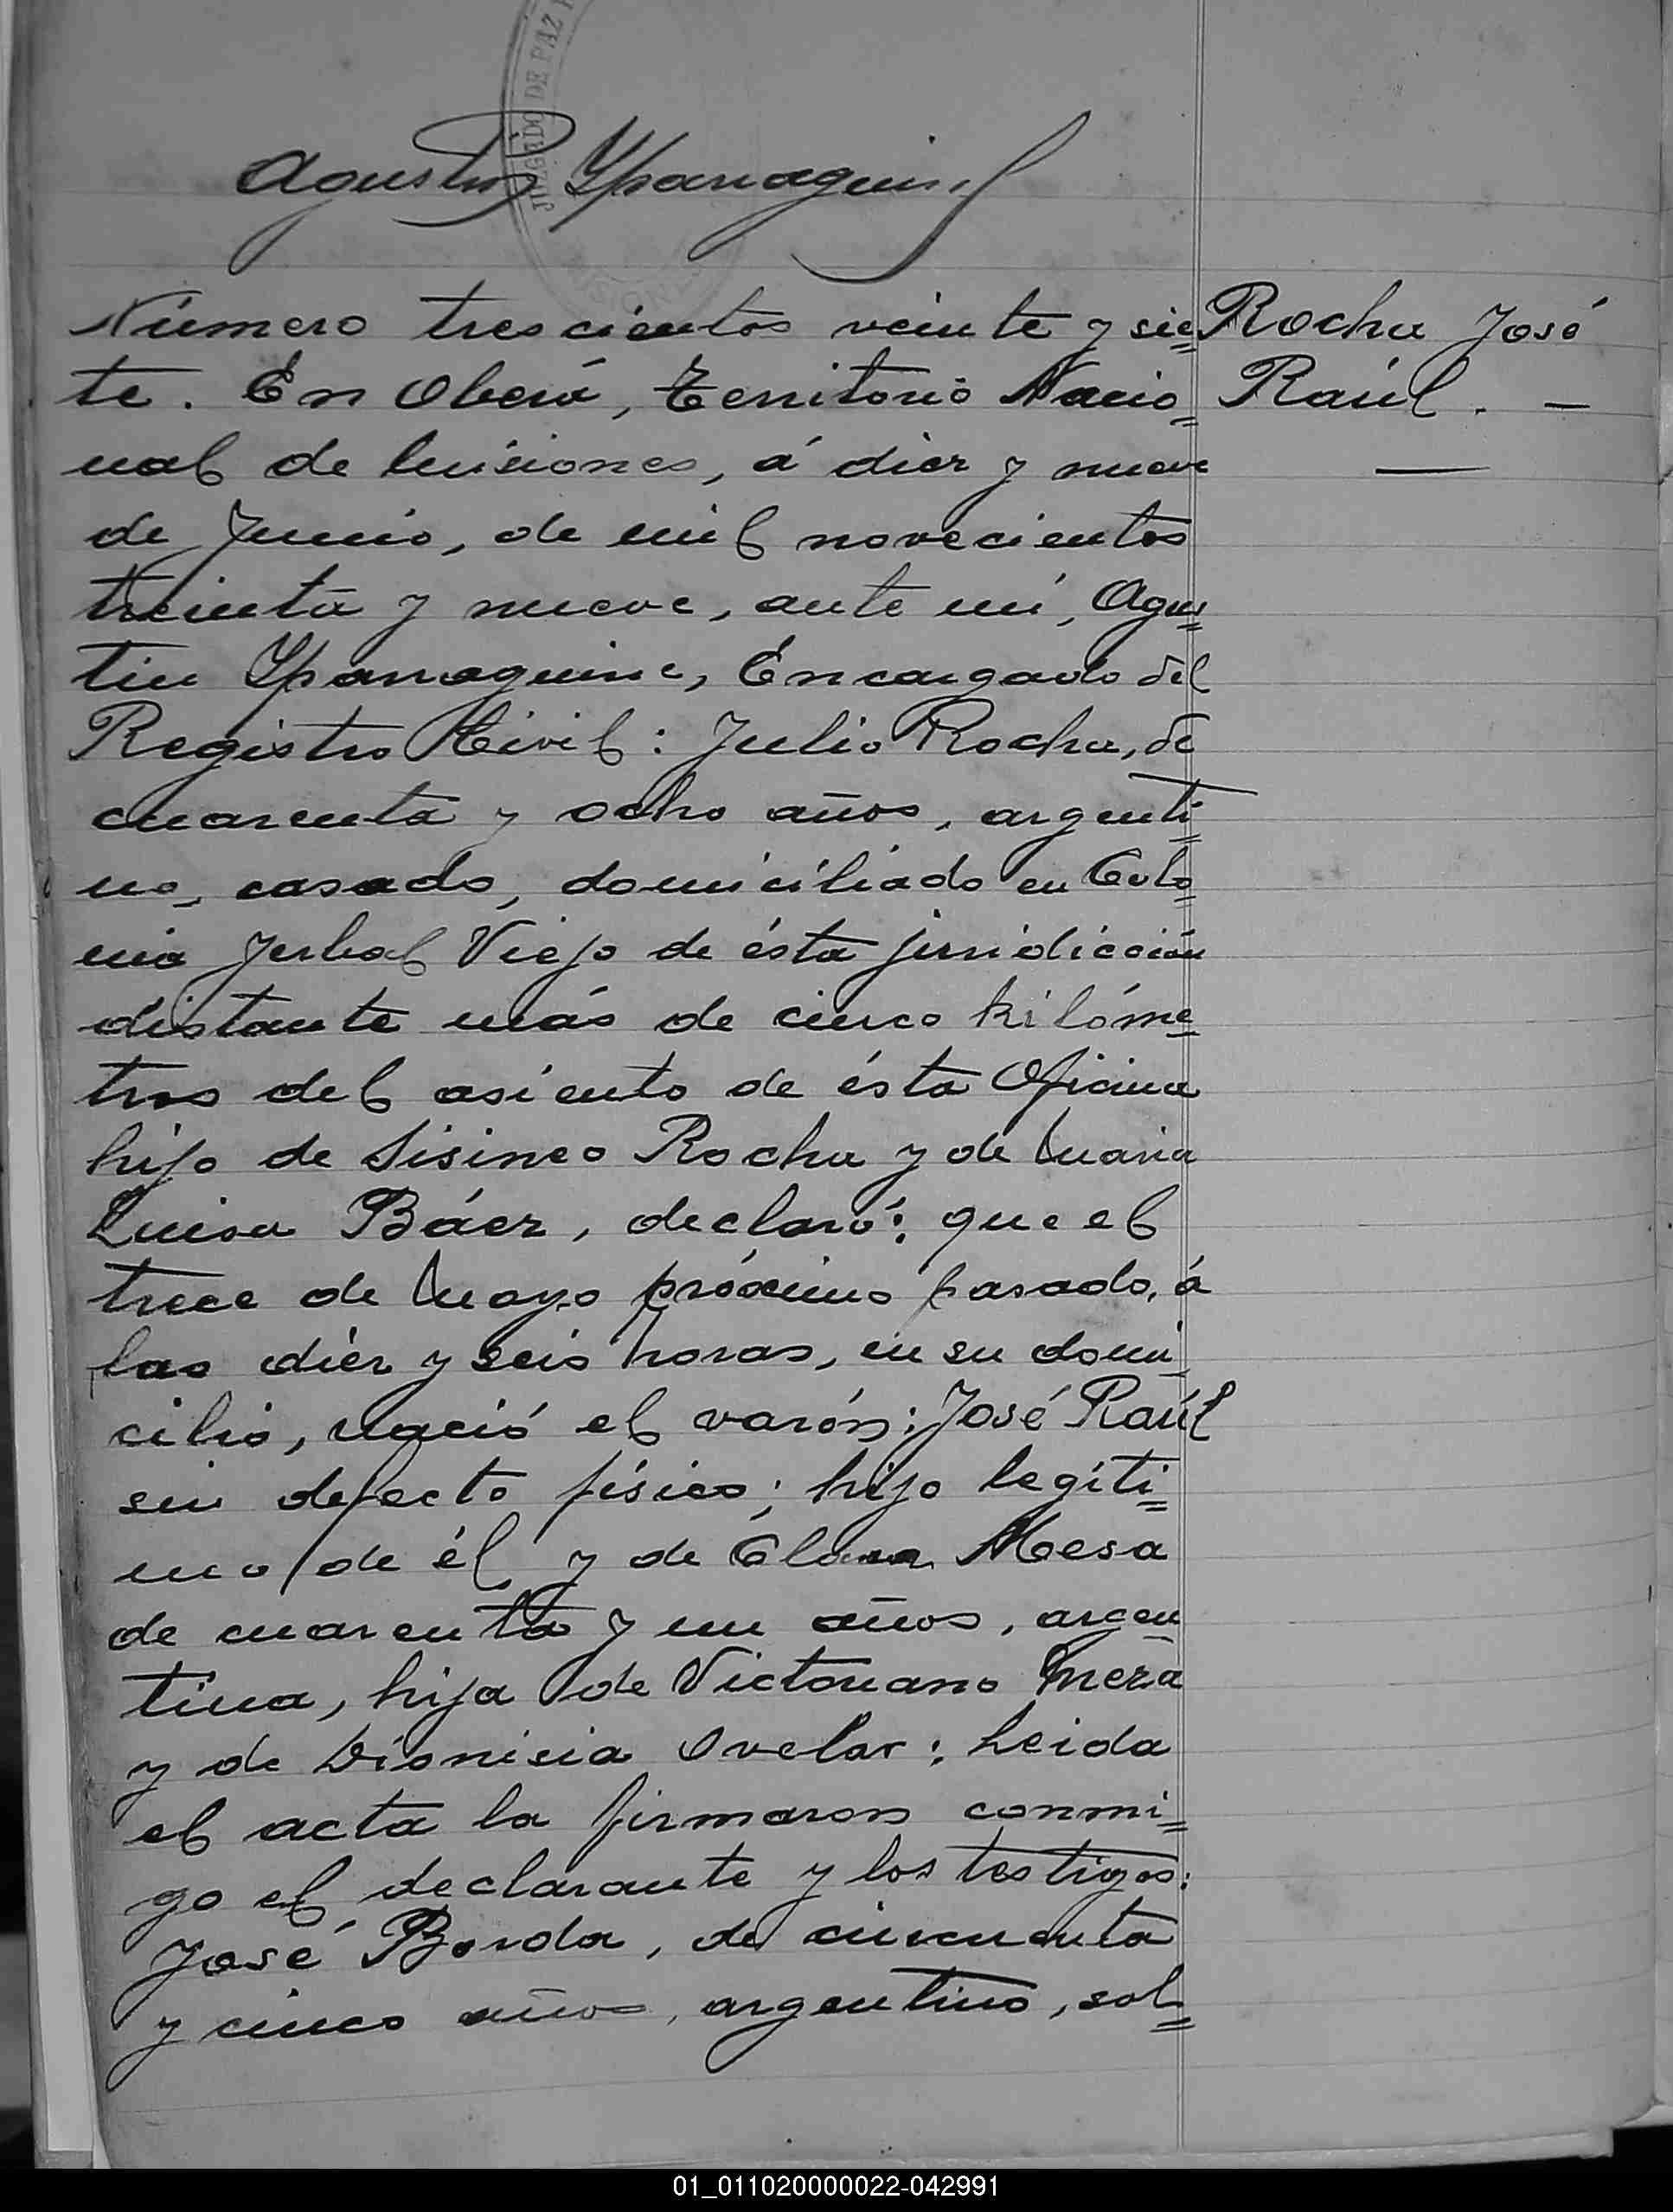 JUZGADO DE PAZ
MISIONES
Agustin Yparraguirre
Número trescientos veinte y sie=
te. En Oberá, Territorio Nacio=
nal de Misiones, á diez y nueve
de Junio, de mil novecientos
treinta y nueve, ante mí, Agus=
tin Yparraguirre, Encargado del
Registro Civil: Julio Rocha, de
cuarenta y ocho años, argenti=
no, casado, domiciliado en Colo=
nia Yerbal Viejo de ésta jurisdicción
distante más de cinco kilóme=
tros del asiento de ésta Oficina
hijo de Sisineo Rocha y de Maria
Luisa Báez, declaró: que el
trece de Mayo próximo pasado, á
las diez y seis horas, en su domi
cilio, nació el varón: José Raúl
sin defecto físico; hijo legíti=
mo de él y de Clara Mesa
de cuarenta y un años, argen
tina, hija de Victoriano Meza
y de Dionisia Ovelar: Leida
el acta la firmaron conmi=
go el declarante y los testigos:
José Borda, de cincuenta
y cinco años, argentino, sol=
Rocha José
Raúl. —
01_011020000022-042991